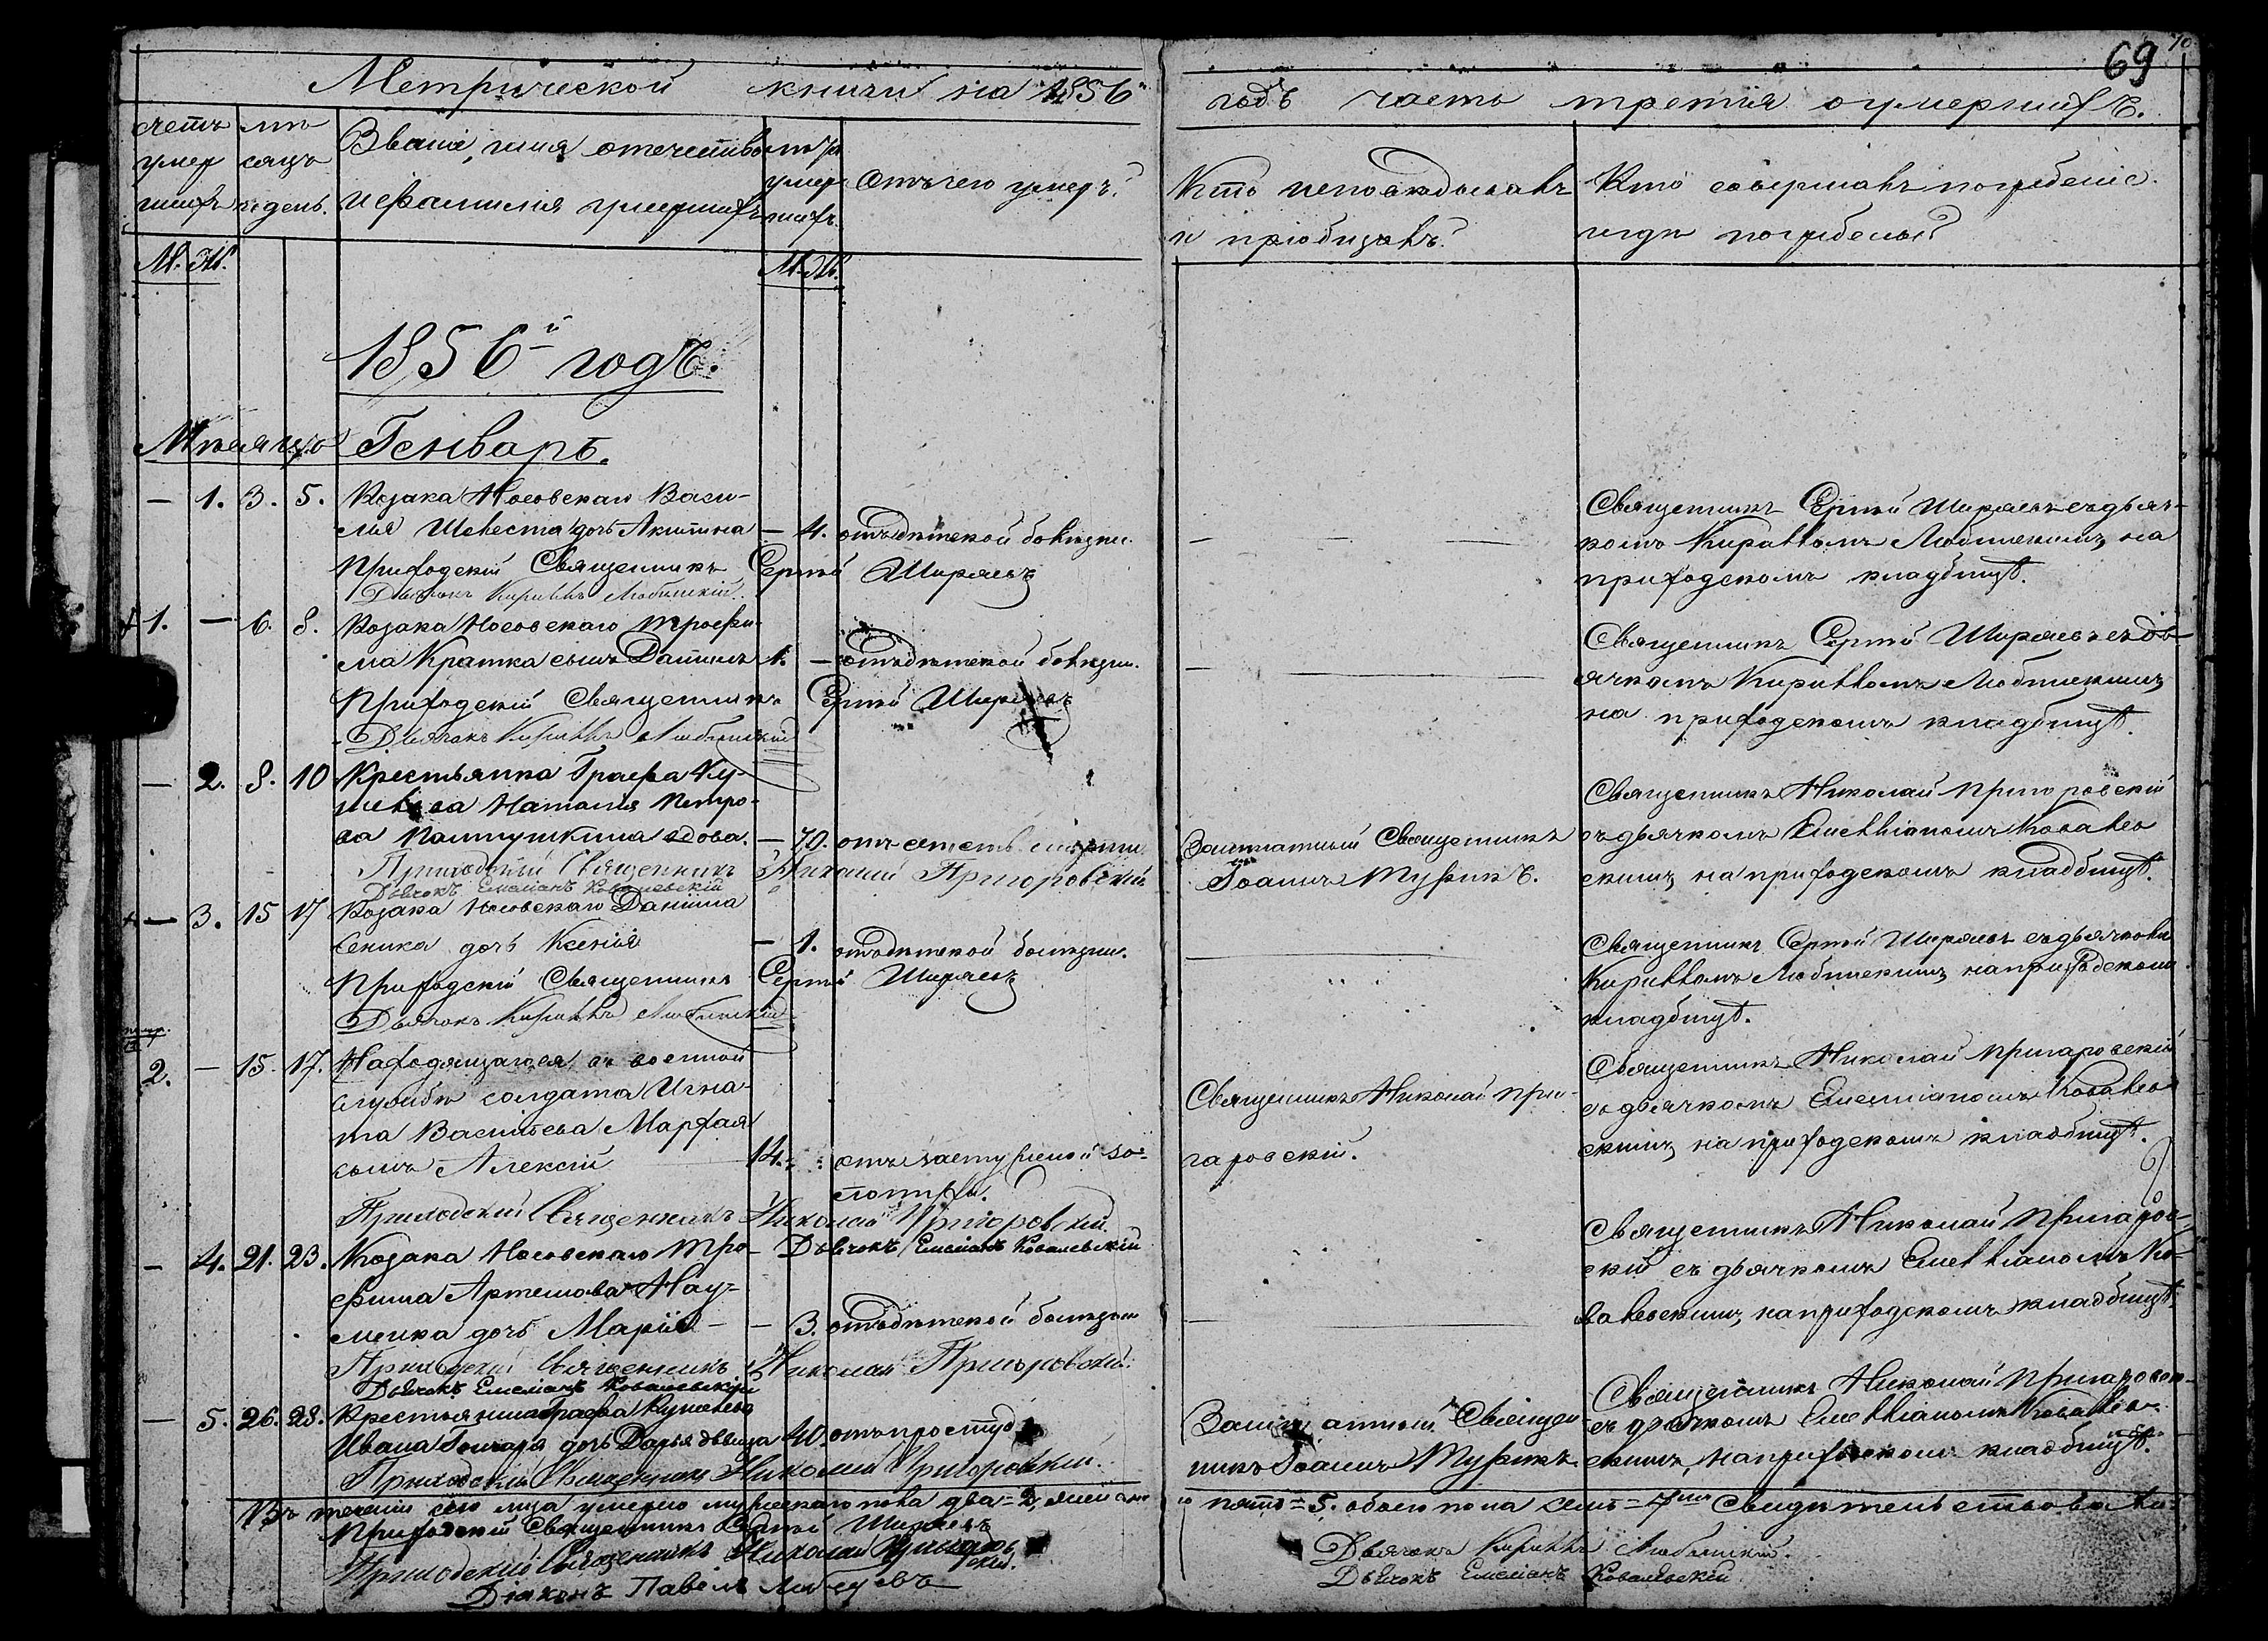 69
70
Метрической книги на 1856й
годъ часть третія о умершихъ.
счетъ умершихъ
мѣсяцъ и день.
Званіе, имя отечество
и фамилія умершихъ
лѣта умершихъ
Отъ чего умеръ?
Кто исповѣдывалъ
и пріобщалъ?
Кто совершалъ погребеніе
и гдѣ погребены?
М. Ж.
М. Ж.
1856й годъ.
Мѣсяцъ Генварь.
— 1. 3. 5. Козака Носовскаго Васи-
лія Шевеста дочь Акилина — 4. отъ дѣтской болѣзни.
Приходскій Священникъ Сергѣй Ширяевъ
Дьячокъ Кириллъ Любинскій.
Священникъ Сергѣй Ширяевъ съ дьяч-
комъ Кирилломъ Любинскимъ, на
приходскомъ кладбищѣ.
1. — 6. 8. Козака Носовскаго Трофи-
ма Кратка сынъ Даниилъ 1. — отъ дѣтской болѣзни.
Приходскій Священникъ Сергѣй Ширяевъ
Дьячокъ Кириллъ Любинскій
Священникъ Сергѣй Ширяевъ съ дь-
ячкомъ Кирилломъ Любинскимъ,
на приходскомъ кладбищѣ.
— 2. 8. 10 Крестьянка Графа Ку-
шелева Наталія Петро-
ва вдова. — 70. отъ естеств. смерти
Приходскій Священникъ Николай Пригоровскій
Дьячокъ Емеліанъ Ковалевскій
Заштатный Священникъ
Іоаннъ
Священникъ Николай Пригоровскій
съ дьячкомъ Емелліаномъ Ковалев-
скимъ, на приходскомъ кладбищѣ.
— 3. 15 17 Козака Носовскаго Даніила
Сеника дочь Ксенія — 1. отъ дѣтской болѣзни.
Приходскій Священникъ Сергѣй Ширяевъ
Дьячокъ Кириллъ Любинскій
Священникъ Сергѣй Ширяевъ съ дьячкомъ
Кирилломъ Любинскимъ, на приходскомъ
кладбищѣ.
2. — 15. 17. Находящагося въ военной
службѣ солдата Игна-
та Васильева Марфая
сынъ Алексій 14. отъ
Приходскій Священникъ Николай Пригоровскій
Дьячокъ Емеліанъ Ковалевскій
Священникъ Николай При-
гаровскій.
Священникъ Николай Пригаровскій
съ дьячкомъ Емеліаномъ Ковалев-
скимъ, на приходскомъ кладбищѣ.
— 4. 21. 23. Козака Носовскаго Тро-
фима Артемова Нау-
менка дочь Марія — 3. отъ дѣтской болѣзни
Приходскій Священникъ Николай Пригоровскій
Дьячокъ Емеліанъ Ковалевскій
Священникъ Николай Пригаров-
скій съ дьячкомъ Емелліаномъ Ко-
валевскимъ, на приходскомъ кладбищѣ.
— 5. 26. 28. Крестьянина Графа Кушелева
Ивана Гончаря дочь Дарья дѣвица 40. отъ простуды
Приходскій Священникъ Николай Пригоровскій
Заштатный Священ-
никъ Іоаннъ
Священникъ Николай Пригаровскій
съ дьячкомъ Емелліаномъ Ковалев-
скимъ, на приходскомъ кладбищѣ.
Въ теченіи сего мѣсяца умерло мужескаго пола два = 2, женска-
го пять = 5. обоего пола семь = 7 свидѣтельствовали:
Приходскій Священникъ Сергѣй Ширяевъ
Приходскій Священникъ Николай Пригоровскій.
Діаконъ Павелъ
Дьячокъ Кириллъ Любинскій.
Дьячокъ Емеліанъ Ковалевскій